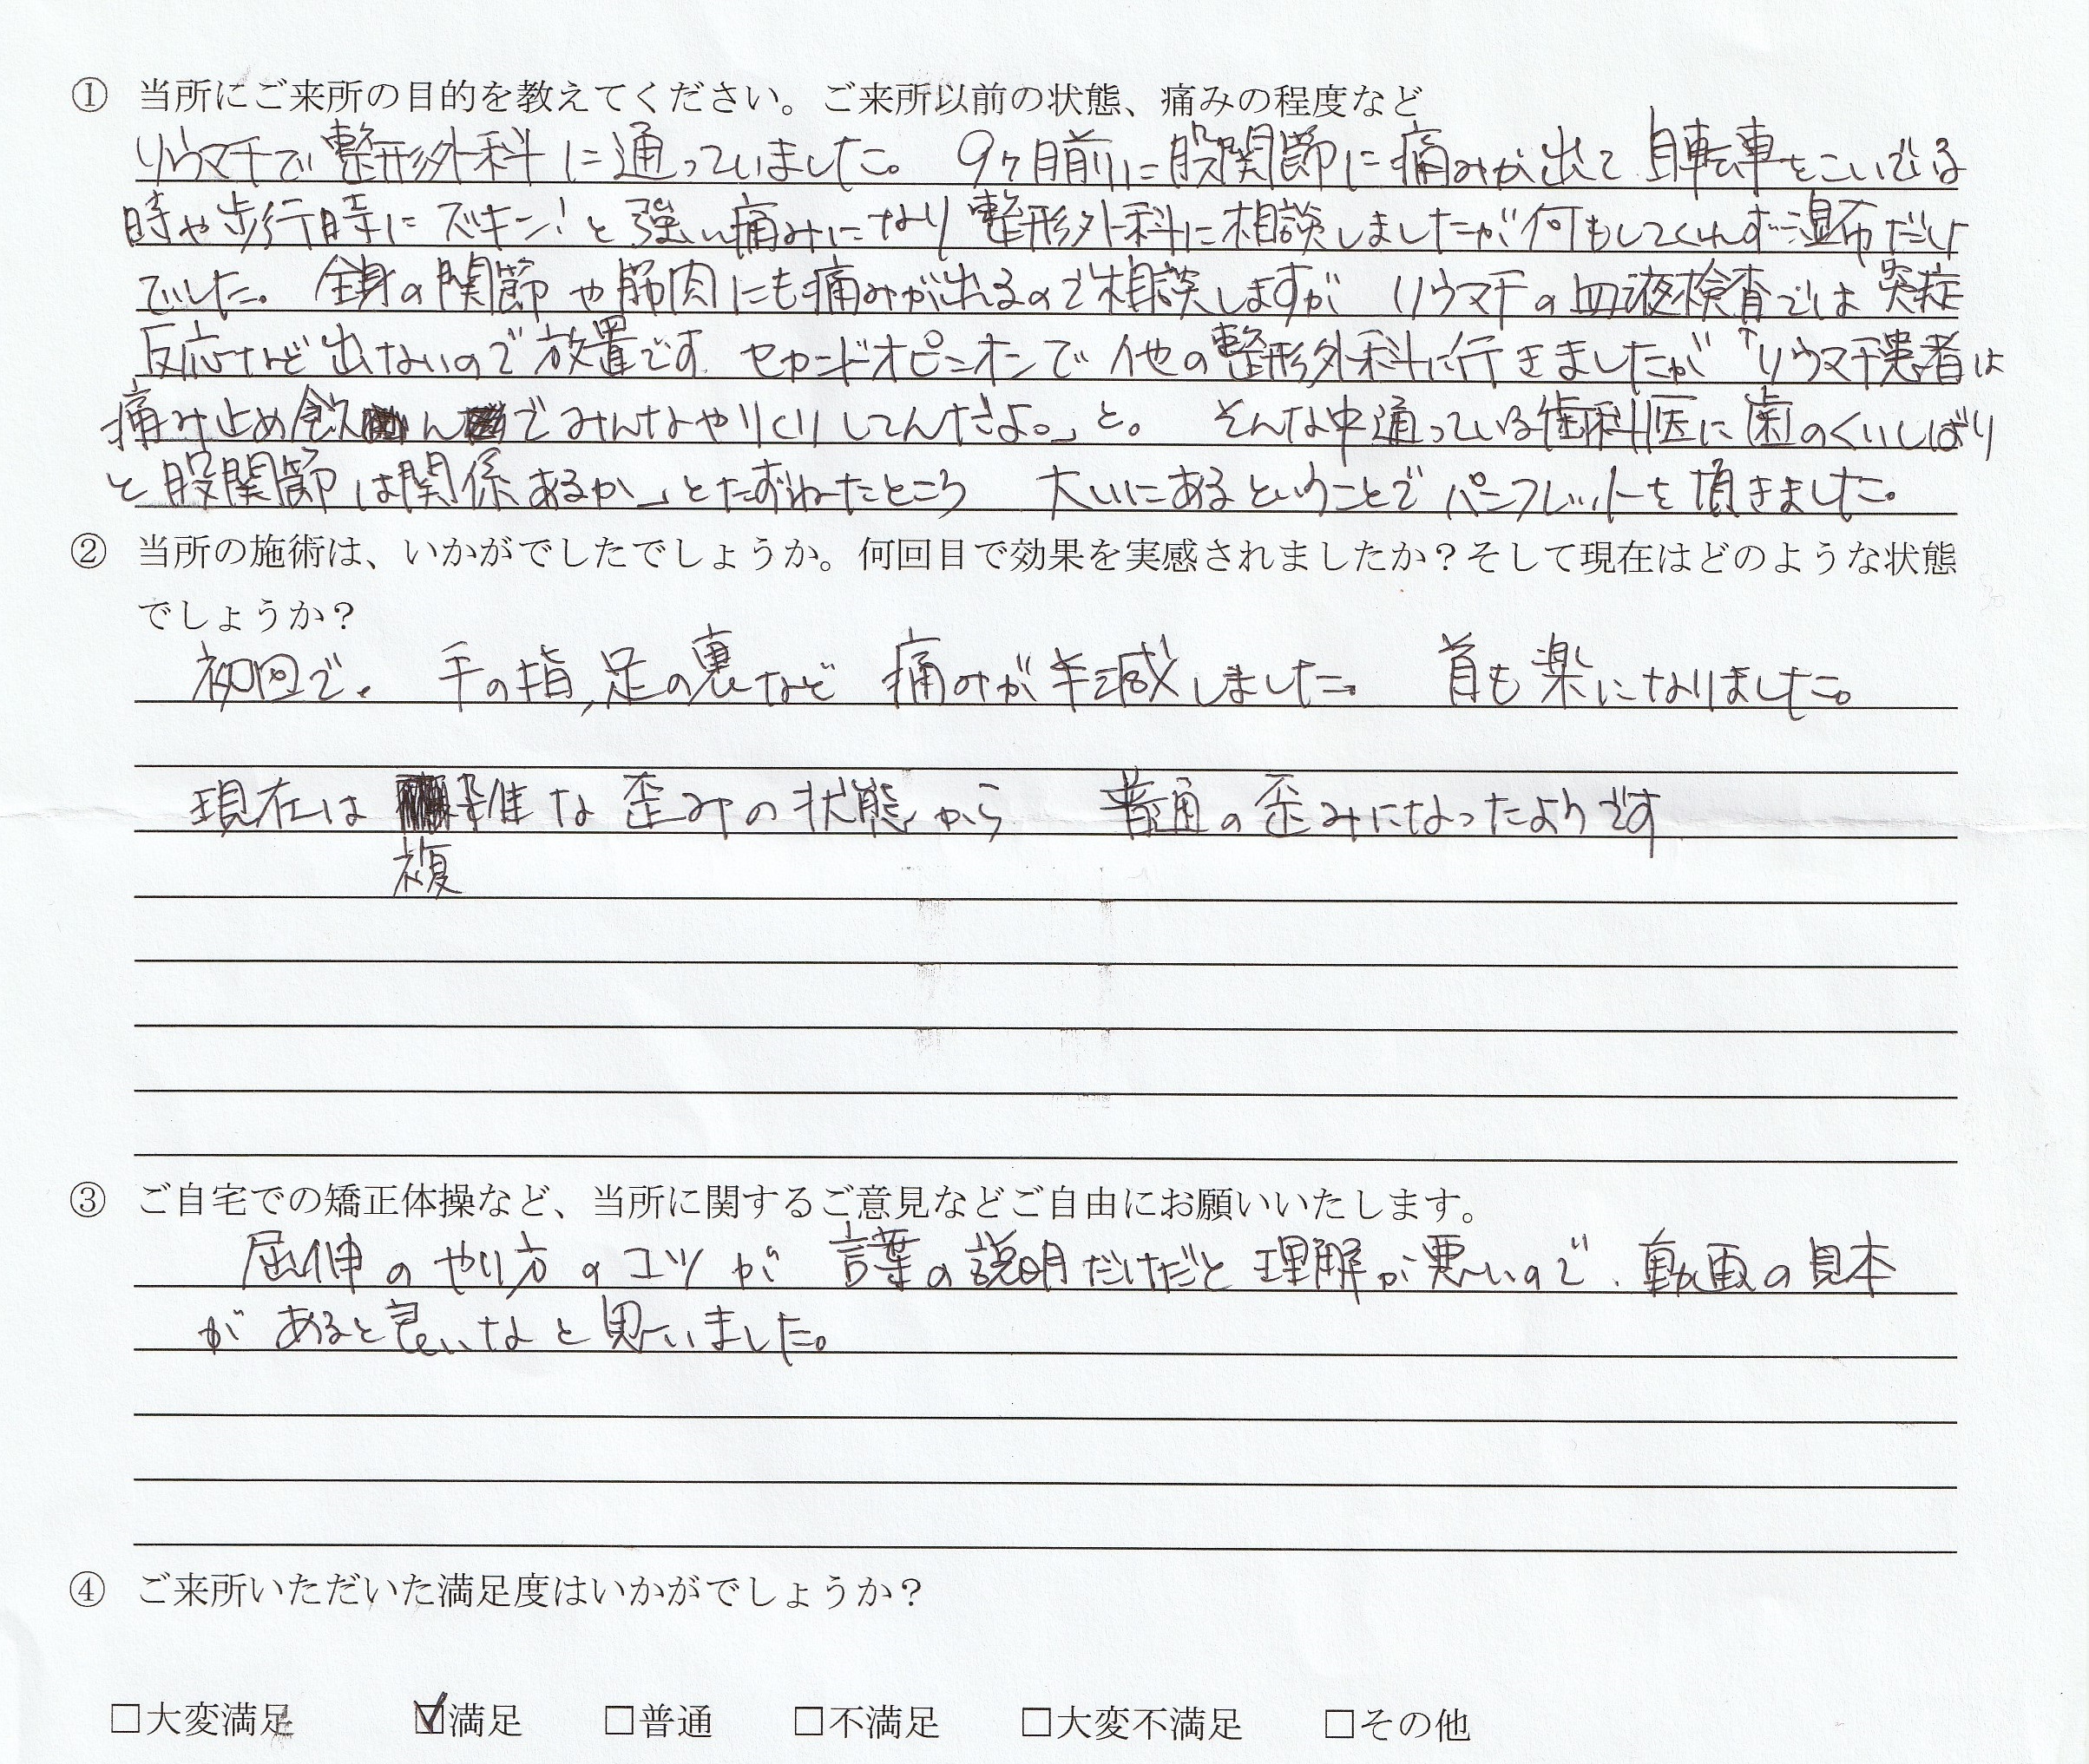 ① 当所にご来所の目的を教えてください。ご来所以前の状態、痛みの程度など
リウマチで整形外科に通っていました。9ヶ月前に股関節に痛みが出て自転車をこいでる
時や歩行時にズキン!と強い痛みになり整形外科に相談しましたが何もしてくれず湿布だけ
でした。全身の関節や筋肉にも痛みが出れるので相談しますが リウマチの血液検査では炎症
反応など出ないので放置です。セカンドオピニオンで他の整形外科に行きましたが「リウマチ患者は
痛み止め飲んでみんなやりくりしてんだよ。」と。 そんな中通っている歯科医に歯のくいしばり
と股関節は関係あるか」とたずねたところ 大いにあるということでパンフレットを頂きました。
② 当所の施術は、いかがでしたでしょうか。何回目で効果を実感されましたか?そして現在はどのような状態
でしょうか?
初回で。 手の指,足の裏など 痛みが半減しました。 首も楽になりました。
現在は 雑な歪みの状態から 普通の歪みになったようです
複
③ ご自宅での矯正体操など、当所に関するご意見などご自由にお願いいたします。
屈伸のやり方のコツが 言葉の説明だけだと理解が悪いので、動画の見本
があると良いなと思いました。
④ ご来所いただいた満足度はいかがでしょうか?
□大変満足 ☑満足 □普通 □不満足 □大変不満足 □その他